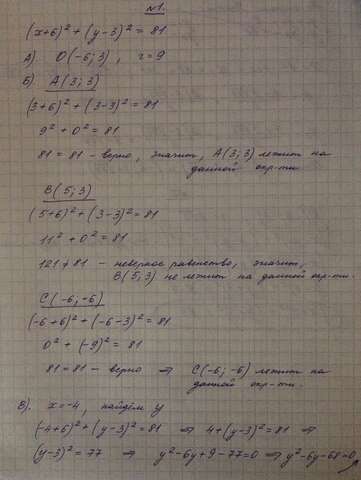 №1.
(x+6)² + (y-3)² = 81
А) O(-6;3), r=9
Б) A(3;3)
(3+6)² + (3-3)² = 81
9² + 0² = 81
81 = 81 - верно, значит, A(3;3) лежит на
данной окр-ти.
B(5;3)
(5+6)² + (3-3)² = 81
11² + 0² = 81
121 ≠ 81 - неверное равенство, значит,
B(5;3) не лежит на данной окр-ти.
C(-6;-6)
(-6+6)² + (-6-3)² = 81
0² + (-9)² = 81
81 = 81 - верно ⇒ C(-6;-6) лежит на
данной окр-ти.
В. x=-4, найдем y
(-4+6)² + (y-3)² = 81 ⇒ 4+(y-3)² = 81 ⇒
(y-3)² = 77 ⇒ y²-6y+9-77=0 ⇒ y²-6y-68=0